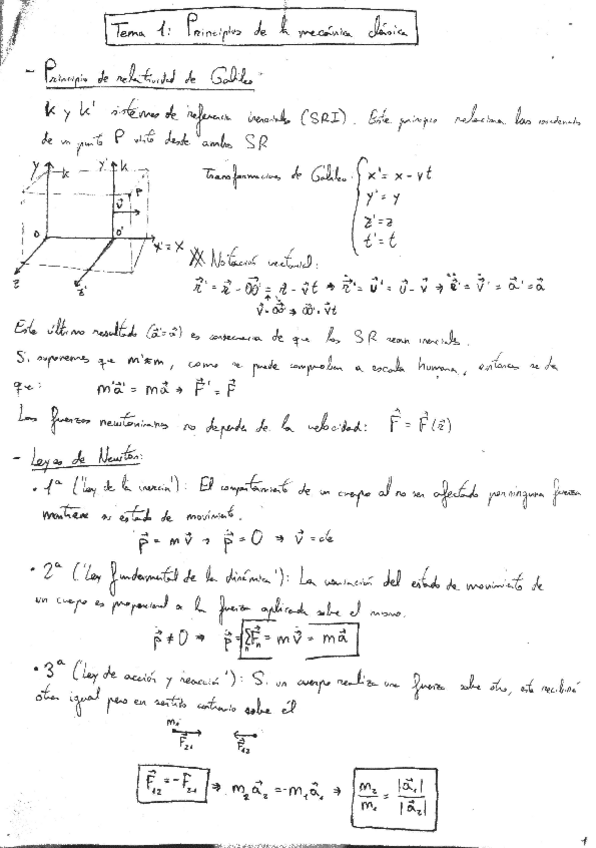 Tema 1: Principios de la mecánica clásica
- Principio de relatividad de Galileo
K y K' sistemas de referencia inerciales (SRI). Este principio relaciona las coordenadas
de un punto P visto desde ambos SR
Transformaciones de Galileo: { x' = x - vt
y' = y
z' = z
t' = t
y K y' K P v⃗ O O' x' ≡ x z z'
Notación vectorial:
r⃗' = r⃗ - OO⃗' = r⃗ - v⃗t ⇒ ṙ⃗' = u⃗' = u⃗ - v⃗ ⇒ r̈⃗' = a⃗' = a⃗
OO⃗' = v⃗t
Este último resultado (a⃗' = a⃗) es consecuencia de que los SR sean inerciales.
Si suponemos que m' = m, como se puede comprobar a escala humana, entonces se da
que: m'a⃗' = ma⃗ ⇒ F⃗' = F⃗
Las fuerzas newtonianas no dependen de la velocidad: F⃗ = F⃗(r⃗)
- Leyes de Newton:
• 1ª ('Ley de la inercia'): El comportamiento de un cuerpo al no ser afectado por ninguna fuerza
mantiene su estado de movimiento.
p⃗ = mv⃗ ⇒ ṗ⃗ = 0 ⇒ v⃗ = cte
• 2ª ('Ley fundamental de la dinámica'): La variación del estado de movimiento de
un cuerpo es proporcional a la fuerza aplicada sobre el mismo.
ṗ⃗ ≠ 0 ⇒ ṗ⃗ = ΣF⃗ₙ = mv̇⃗ = ma⃗
• 3ª ('Ley de acción y reacción'): Si un cuerpo realiza una fuerza sobre otro, este recibirá
otra igual pero en sentido contrario sobre él
m₁ F⃗₂₁ F⃗₁₂
F⃗₁₂ = -F⃗₂₁ ⇒ m₂a⃗₂ = -m₁a⃗₁ ⇒ m₂/m₁ = |a⃗₁|/|a⃗₂|
1